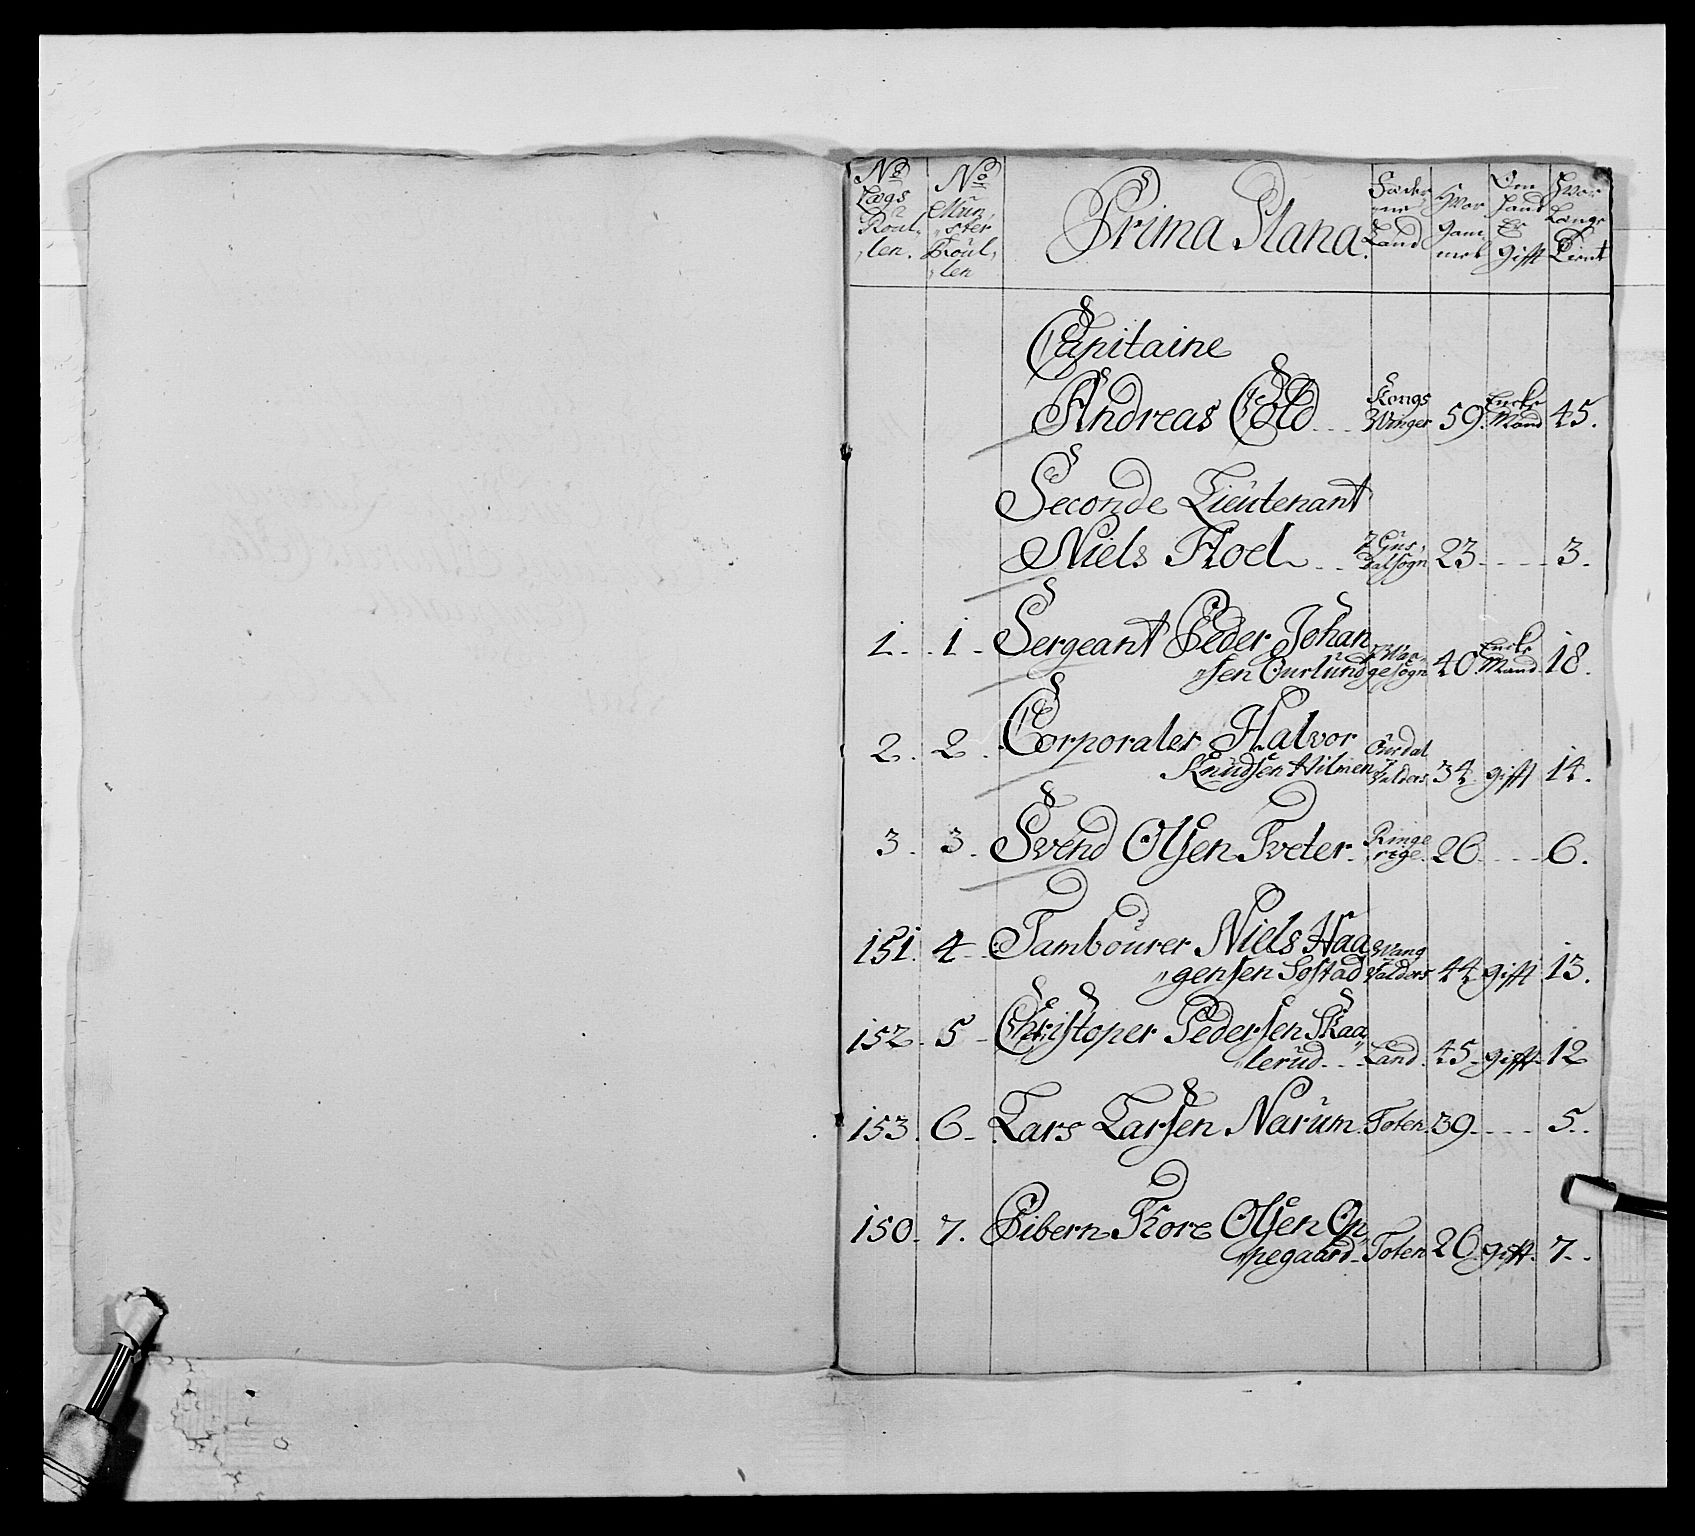 No Lægs Roul,,len.
No Mün,,ster Roül,,len
Prima Plana.
Fæder,,ne Land
Hvor gam,,mel
Om hand Er gifft
Hvor Længe Tient
Capitaine
Andreas Cold Kongs Winger 59. Encke Mand 45.
Seconde Lieutenant
Niels Floel 23 3.
1. 1 Sergeant Peder Johan
,,sen Ourlünd 40 Encke Mand 18.
2. 2. Corporaler Halvor
Knüdsen Hilmen Ourdal Valders 34. gifft 14.
3. 3. Svend Olsen Tveter. Ringe,,rige. 26 6.
151. 4 Tambourer Niels Haa
,,gensen Sostad Wang Valders 44 gifft 13.
152. 5 Christoper Pedersen Skaa,,
,,lerud Land. 45 gifft 12
153. 6 Lars Larsen Narüm Toten. 39 5.
150. 7. Pibern Tore Olsen Op,,
,,pegaard Toten 26 gifft. 7.